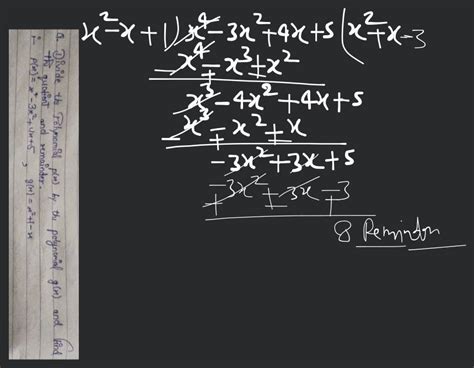 Q. Divide the Polynomial p(x) by the polynomial g(x) and find
the quotient and remainder.
i- p(x) = x⁴-3x²+4x+5, g(x) = x²+1-x
x²-x+1) x⁴-3x²+4x+5 (x²+x-3
x⁴-x³+x²
x³-4x²+4x+5
x³-x²+x
-3x²+3x+5
-3x²+3x-3
8 Remindor